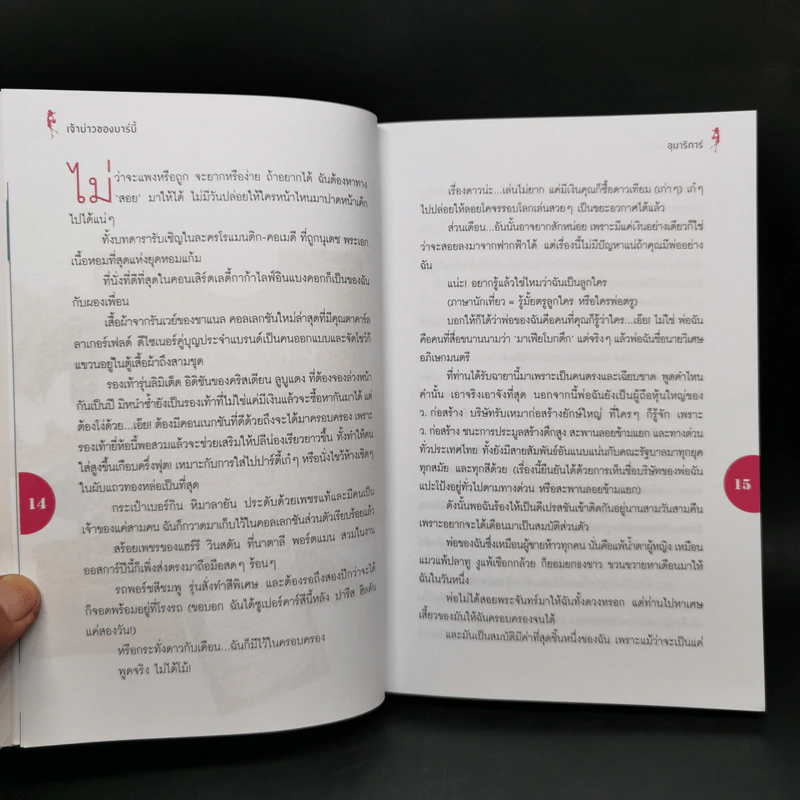 เจ้าบ่าวของบาร์บี้
ไม่ว่าจะแพงหรือถูก จะยากหรือง่าย ถ้าอยากได้ ฉันต้องหาทาง
'สอย' มาให้ได้ ไม่มีวันปล่อยให้ใครหน้าไหนมาปาดหน้าเค้ก
ไปได้แน่ๆ
ทั้งบทดารารับเชิญในละครโรแมนติก-คอเมดี้ ที่ถูกนุเดช พระเอก
เนื้อหอมที่สุดแห่งยุคหอมแก้ม
ที่นั่งที่ดีที่สุดในคอนเสิร์ตเลดี้กาก้าไลฟ์อินแบงคอกก็เป็นของฉัน
กับผองเพื่อน
เสื้อผ้าจากรันเวย์ของชาแนล คอลเลกชันใหม่ล่าสุดที่มีคุณคาคาร์ล
ลาเกอร์เฟลด์ ดีไซเนอร์คู่บุญประจำแบรนด์เป็นคนออกแบบและจัดโชว์ก็
แขวนอยู่ในตู้เสื้อผ้าถึงสามชุด
รองเท้ารุ่นลิมิเต็ด อิดิชันของคริสเตียน ลูบูแตง ที่ต้องจองล่วงหน้า
กันเป็นปี มิหนำซ้ำยังเป็นรองเท้าที่ไม่ใช่แค่มีเงินแล้วจะซื้อหากันมาได้ แต่
ต้องโง่ด้วย...เอ๊ย! ต้องมีคอนเนกชันที่ดีด้วยถึงจะได้มาครอบครอง เพราะ
รองเท้ายี่ห้อนี้พอสวมแล้วจะช่วยเสริมให้ปลีน่องเรียวยาวขึ้น ทั้งทำให้คน
ใส่สูงขึ้นเกือบครึ่งฟุต! เหมาะกับการใส่ไปปาร์ตี้เก๋ๆ หรือนั่งไขว่ห้างเชิดๆ
ในผับแถวทองหล่อเป็นที่สุด
กระเป๋าเบอร์กิน หิมาลายัน ประดับด้วยเพชรแท้และมีคนเป็น
เจ้าของแค่สามคน ฉันก็กวาดมาเก็บไว้ในคอลเลกชันส่วนตัวเรียบร้อยแล้ว
สร้อยเพชรของแฮร์รี วินสตัน ที่นาตาลี พอร์ตแมน สวมในงาน
ออสการ์ปีนี้ก็เพิ่งส่งตรงมาถึงมือสดๆ ร้อนๆ
รถพอร์ชสีชมพู รุ่นสั่งทำสีพิเศษ และต้องรอถึงสองปีกว่าจะได้
ก็จอดพร้อมอยู่ที่โรงรถ (ขอบอก ฉันได้ซูเปอร์คาร์สีนี้หลัง ปารีส ฮิลตัน
แค่สองวัน!)
หรือกระทั่งดาวกับเดือน...ฉันก็มีไว้ในครอบครอง
พูดจริง ไม่ได้โม้!
14
อุมาริการ์
เรื่องดาวน่ะ...เล่นไม่ยาก แค่มีเงินคุณก็ซื้อดาวเทียม (เก่าๆ) เก๋ๆ
ไปปล่อยให้ลอยโคจรรอบโลกเล่นสวยๆ เป็นขยะอวกาศได้แล้ว
ส่วนเดือน...อันนั้นอาจยากสักหน่อย เพราะมีแค่เงินอย่างเดียวก็ใช่
ว่าจะสอยลงมาจากฟากฟ้าได้ แต่เรื่องนี้ไม่มีปัญหาแน่ถ้าคุณมีพ่ออย่าง
ฉัน
แน่ะ! อยากรู้แล้วใช่ไหมว่าฉันเป็นลูกใคร
(ภาษานักเที่ยว = รู้มั้ยตรูลูกใคร หรือใครพ่อตรู)
บอกให้ก็ได้ว่าพ่อของฉันคือคนที่คุณก็รู้ว่าใคร...เอ๊ย! ไม่ใช่ พ่อฉัน
คือคนที่สื่อขนานนามว่า 'มาเฟียโบกตึก' แต่จริงๆ แล้วพ่อฉันชื่อนายวิเศษ
อภิเษกมนตรี
ที่ท่านได้รับฉายานี้มาเพราะเป็นคนตรงและเฉียบขาด พูดคำไหน
คำนั้น เอาจริงเอาจังที่สุด นอกจากนี้พ่อฉันยังเป็นผู้ถือหุ้นใหญ่ของ
ว. ก่อสร้าง บริษัทรับเหมาก่อสร้างยักษ์ใหญ่ ที่ใครๆ ก็รู้จัก เพราะ
ว. ก่อสร้าง ชนะการประมูลสร้างตึกสูง สะพานลอยข้ามแยก และทางด่วน
ทั่วประเทศไทย ทั้งยังมีสายสัมพันธ์อันแนบแน่นกับคณะรัฐบาลมาทุกยุค
ทุกสมัย และทุกสีด้วย (เรื่องนี้ยืนยันได้ด้วยการเห็นชื่อบริษัทของพ่อฉัน
แปะโป้งอยู่ทั่วไปตามทางด่วน หรือสะพานลอยข้ามแยก)
ดังนั้นพอฉันร้องไห้เป็นดีเปรสชันเข้าติดกันอยู่นานสามวันสามคืน
เพราะอยากจะได้เดือนมาเป็นสมบัติส่วนตัว
พ่อของฉันซึ่งเหมือนผู้ชายห้าวทุกคน นั่นคือแพ้น้ำตาผู้หญิง เหมือน
แมวแพ้ปลาทู งูแพ้เชือกกล้วย ก็ยอมยกธงขาว ขวนขวายหาเดือนมาให้
ฉันในวันหนึ่ง
พ่อไม่ได้สอยพระจันทร์มาให้ฉันทั้งดวงหรอก แต่ท่านไปหาเศษ
เสี้ยวของมันให้ฉันครอบครองจนได้
และมันเป็นสมบัติมีค่าที่สุดชิ้นหนึ่งของฉัน เพราะแม้ว่าจะเป็นแค่
15